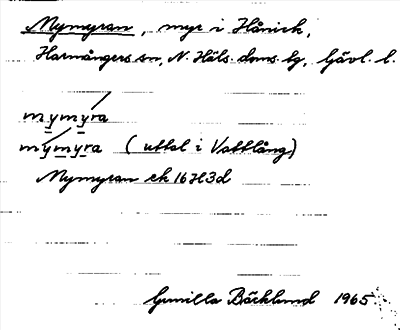 Mymyran, myr i Hånick,
Harmångers sn, N. Häls. dms. tg, Gävl. l.
mymyra
mymyra (uttal i Vattlång)
Mymyran ek 16H3d
Gunilla Bäcklund 1965.